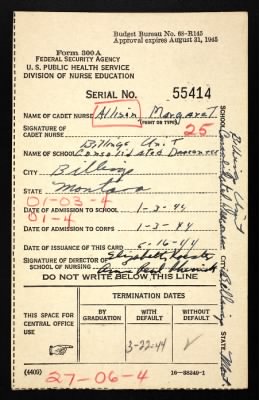 Budget Bureau No. 68-R145
Approval expires August 31, 1945
Form 300A
FEDERAL SECURITY AGENCY
U. S. PUBLIC HEALTH SERVICE
DIVISION OF NURSE EDUCATION
SERIAL NO. 55414
NAME OF CADET NURSE Allison Margaret
(PRINT OR TYPE)
SIGNATURE OF CADET NURSE
25
Billings Unit
NAME OF SCHOOL Consolidated Deaconess
CITY Billings
STATE Montana
01-03-4
DATE OF ADMISSION TO SCHOOL 1-3-44
01-4
DATE OF ADMISSION TO CORPS 1-3-44
DATE OF ISSUANCE OF THIS CARD 6-16-44
SIGNATURE OF DIRECTOR SCHOOL OF NURSING
DO NOT WRITE BELOW THIS LINE
THIS SPACE FOR CENTRAL OFFICE USE
TERMINATION DATES
BY GRADUATION
WITH DEFAULT
WITHOUT DEFAULT
3-22-44
(4409)
16-38249-1
27-06-4
SCHOOL Billings Unit
CITY Billings
STATE Mont